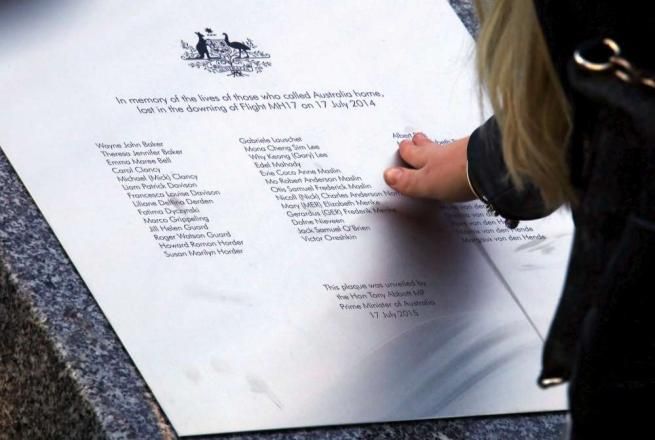 In memory of the lives of those who called Australia home,
lost in the downing of Flight MH17 on 17 July 2014
Wayne John Baker
Theresa Jennifer Baker
Emma Maree Bell
Carol Clancy
Michael (Mick) Clancy
Liam Patrick Davison
Francesca Louise Davison
Liliane Derden
Fatima Dyczynski
Marco Grippeling
Jill Helen Guard
Roger Watson Guard
Howard Ramon Horder
Susan Marilyn Horder
Gabriele Lauschet
Mona Cheng Sim Lee
Why Keong (Gary) Lee
Edel Mahady
Evie Coco Anne Maslin
Mo Robert Anderson Maslin
Otis Samuel Frederick Maslin
Nicoll (Nick) Charles Anderson
Mary (MER) Elizabeth Menke
Gerardus (GER) Frederik Menke
Dafne Nieveen
Jack Samuel O'Brien
Victor Oreshkin
Albert
van den
van den Hende
van den Hende
van den Hende
This plaque was unveiled by
the Hon Tony Abbott MP
Prime Minister of Australia
17 July 2015